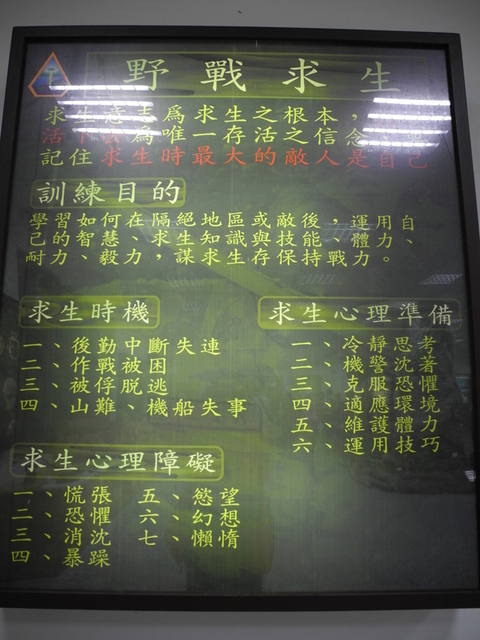 野戰求生
求生意志為求生之根本，
活下去為唯一存活之信念，
記住求生時最大的敵人是自己
訓練目的
學習如何在隔絕地區或敵後，運用自
己的智慧、求生知識與技能、體力、
耐力、毅力，謀求生存保持戰力。
求生時機
一、後勤中斷失連
二、作戰被困
三、被俘脫逃
四、山難、機船失事
求生心理準備
一、冷靜思考
二、機警沈著
三、克服恐懼
四、適應環境
五、維護體力
六、運用技巧
求生心理障礙
一、慌張
二、恐懼
三、消沈
四、暴躁
五、慾望
六、幻想
七、懶惰